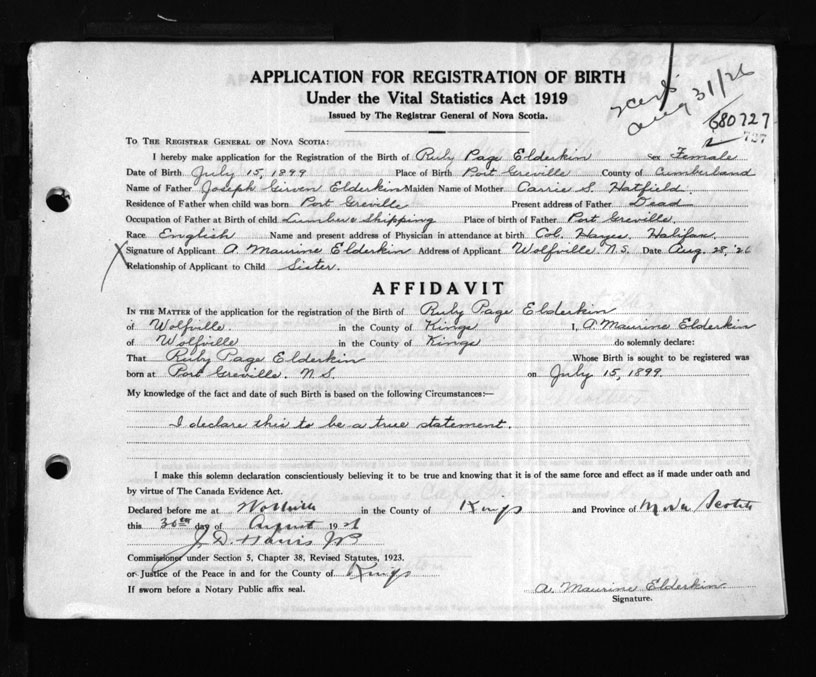 APPLICATION FOR REGISTRATION OF BIRTH
Under the Vital Statistics Act 1919
Issued by The Registrar General of Nova Scotia.
Aug 31/26
680727
727
TO THE REGISTRAR GENERAL OF NOVA SCOTIA:
I hereby make application for the Registration of the Birth of Ruby Page Elderkin Sex Female
Date of Birth July 15, 1899 Place of Birth Port Greville County of Cumberland
Name of Father Joseph Girven Elderkin Maiden Name of Mother Carrie S. Hatfield.
Residence of Father when child was born Port Greville Present address of Father Dead
Occupation of Father at Birth of child Lumber & Shipping Place of birth of Father Port Greville.
Race English Name and present address of Physician in attendance at birth Col. Hayes. Halifax.
X Signature of Applicant A. Maurine Elderkin Address of Applicant Wolfville. N.S. Date Aug. 28, '26
Relationship of Applicant to Child Sister.
AFFIDAVIT
IN THE MATTER of the application for the registration of the Birth of Ruby Page Elderkin
of Wolfville. in the County of Kings I, A Maurine Elderkin
of Wolfville in the County of Kings do solemnly declare:
That Ruby Page Elderkin Whose Birth is sought to be registered was
born at Port Greville. N.S. on July 15, 1899.
My knowledge of the fact and date of such Birth is based on the following Circumstances:—
I declare this to be a true statement.
I make this solemn declaration conscientiously believing it to be true and knowing that it is of the same force and effect as if made under oath and
by virtue of The Canada Evidence Act.
Declared before me at Wolfville in the County of Kings and Province of Nova Scotia
this 30th day of August 192
J. D. Harris JP
Commissioner under Section 5, Chapter 38, Revised Statutes, 1923.
or Justice of the Peace in and for the County of Kings
If sworn before a Notary Public affix seal.
A. Maurine Elderkin
Signature.